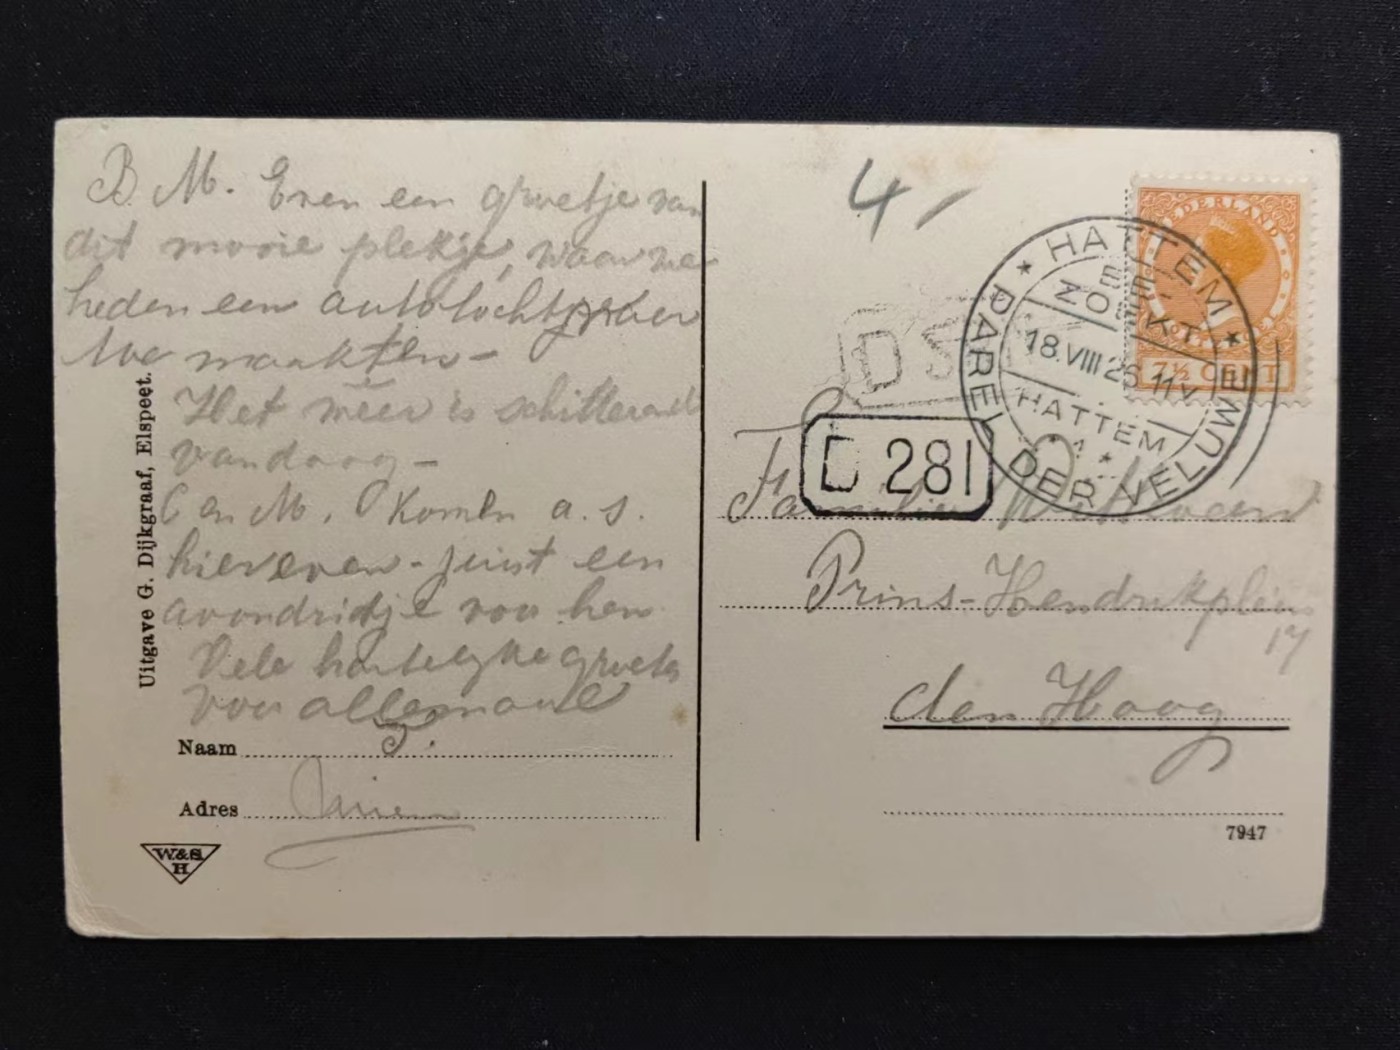 B. M. Even een groetje van
dit mooie plekje, waar we
heden een autotocht
we maakten -
Het méér is schitterend
vandaag -
C en M. komen a. s.
hier even - juist een
avondritje voor hen
Vele hartelyke groeten
voor allemaal
Naam
Adres
Uitgave G. Dijkgraaf, Elspeet.
W.&S.
H
4
NEDERLAND
7½ CENT
HATTEM
PAREL DER VELUWE
BEZOEKT
18.VIII 26.11V
HATTEM
1
D 281
Familie
Prins-Hendrikplein
17
den Haag
7947